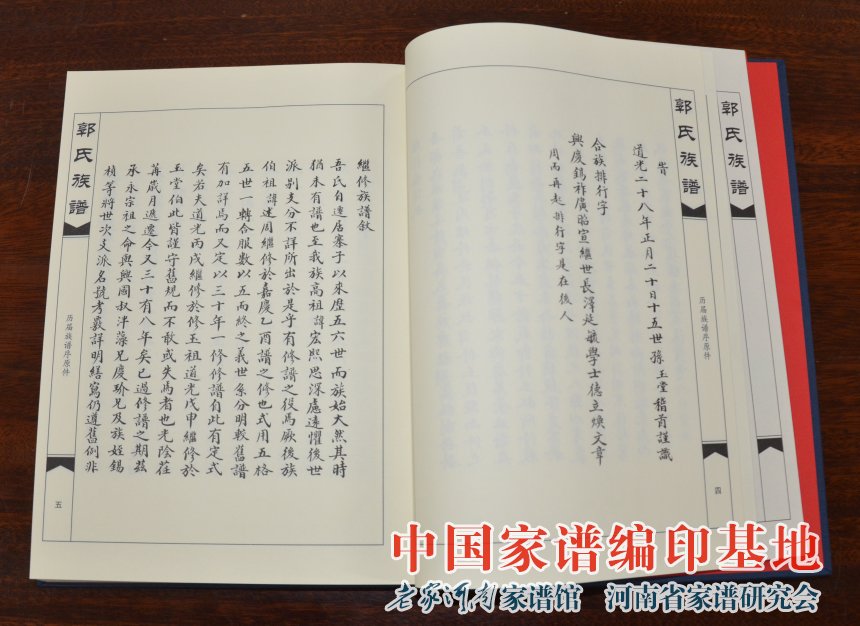 郭氏族譜
郭氏族譜
历届族谱序原件
四
胄
道光二十八年正月二十日十五世孫玉堂稽首謹識
合族排行字
興慶錫祚廣貽宣繼世長澤延毓學士德立煥文章
周而再起排行字是在後人
繼修族譜敘
吾氏自遷居寨子以來歷五六世而族始大然其時
猶未有譜也至我族高祖諱宏熙思深慮遠懼後世
派別支分不詳所出於是乎有修譜之役焉厥後族
伯祖諱建周繼修於嘉慶乙酉譜之修也式用五格
五世一轉合服數以五而終之義世系分明較舊譜
有加詳焉而又定以三十年一修修譜自此有定式
矣若夫道光丙戌繼修於修玉祖道光戊申繼修於
玉堂伯此皆謹守舊規而不敢或失焉者也光陰荏
苒歲月遞遷今又三十有八年矣已過修譜之期茲
承永宗祖之命與興周叔泮藻兄慶珍兄及族姪錫
楨等將世次支派名號考覈詳明繕寫仍遵舊例非
郭氏族譜
历届族谱序原件
五
中国家谱编印基地
老家河南家谱馆 河南省家谱研究会